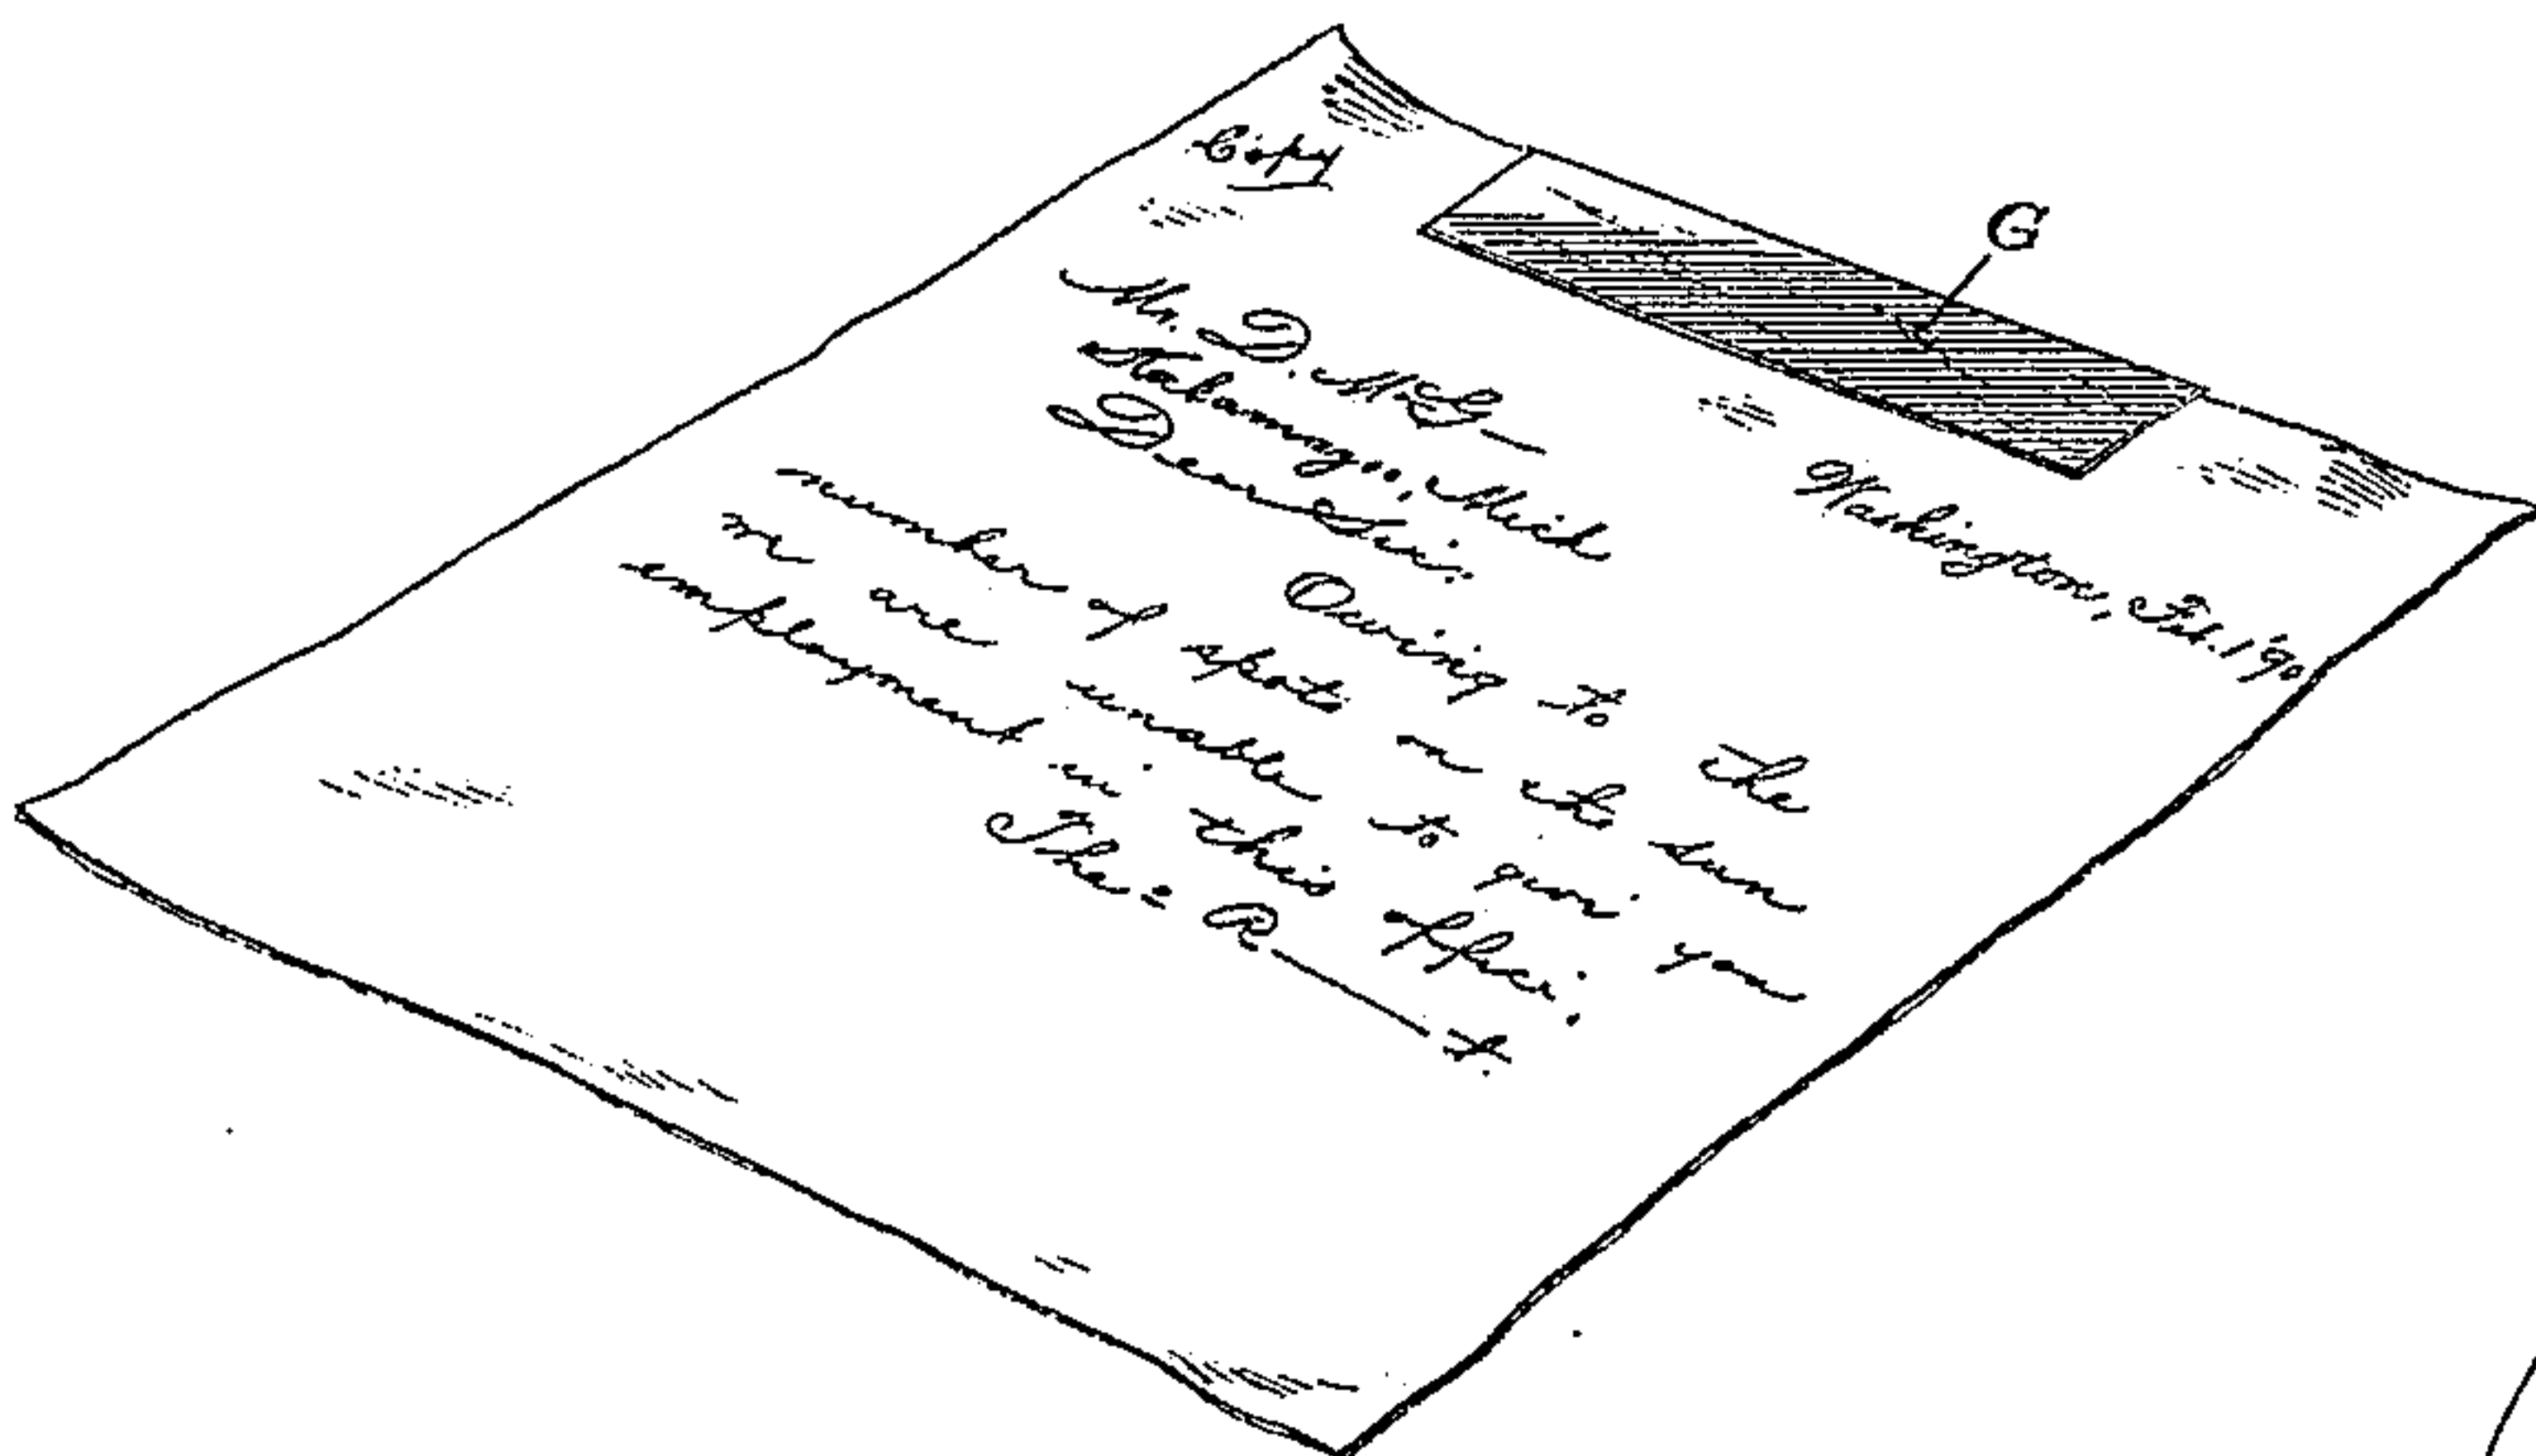 G
Copy
Washington, Feb. 1 '90
Mr. D. McG—
Kalamazoo, Mich
Dear Sir:
Owing to the
number of spots on the sun
we are unable to give you
employment in this office.
Tho: R——t.